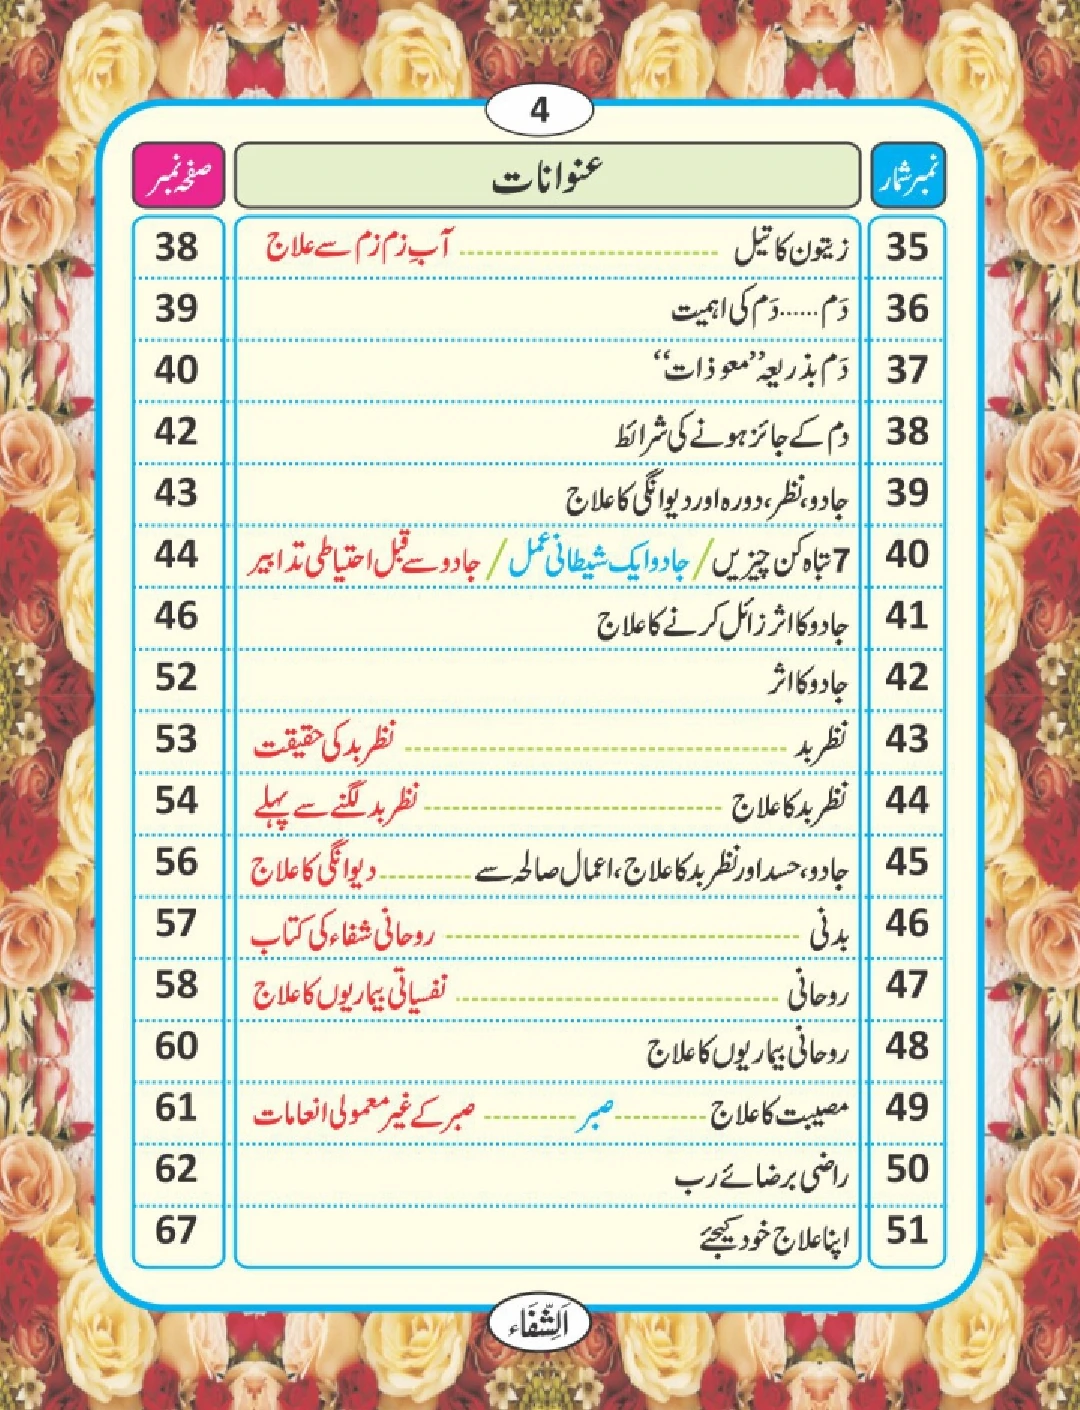 4
نمبر شمار عنوانات صفحہ نمبر
35 زیتون کا تیل -------------------------- آبِ زم زم سے علاج 38
36 دَم......دَم کی اہمیت 39
37 دَم بذریعہ ”معوذات“ 40
38 دم کے جائز ہونے کی شرائط 42
39 جادو، نظر، دورہ اور دیوانگی کا علاج 43
40 7 تباہ کن چیزیں / جادو ایک شیطانی عمل / جادو سے قبل احتیاطی تدابیر 44
41 جادو کا اثر زائل کرنے کا علاج 46
42 جادو کا اثر 52
43 نظر بد -------------------------------------- نظر بد کی حقیقت 53
44 نظر بد کا علاج ------------------------------ نظر بد لگنے سے پہلے 54
45 جادو، حسد اور نظر بد کا علاج، اعمال صالحہ سے --------- دیوانگی کا علاج 56
46 بدنی ----------------------------------- روحانی شفاء کی کتاب 57
47 روحانی -------------------------------- نفسیاتی بیماریوں کا علاج 58
48 روحانی بیماریوں کا علاج 60
49 مصیبت کا علاج --------- صبر --------- صبر کے غیر معمولی انعامات 61
50 راضی برضائے رب 62
51 اپنا علاج خود کیجئے 67
اَلشِّفَاء